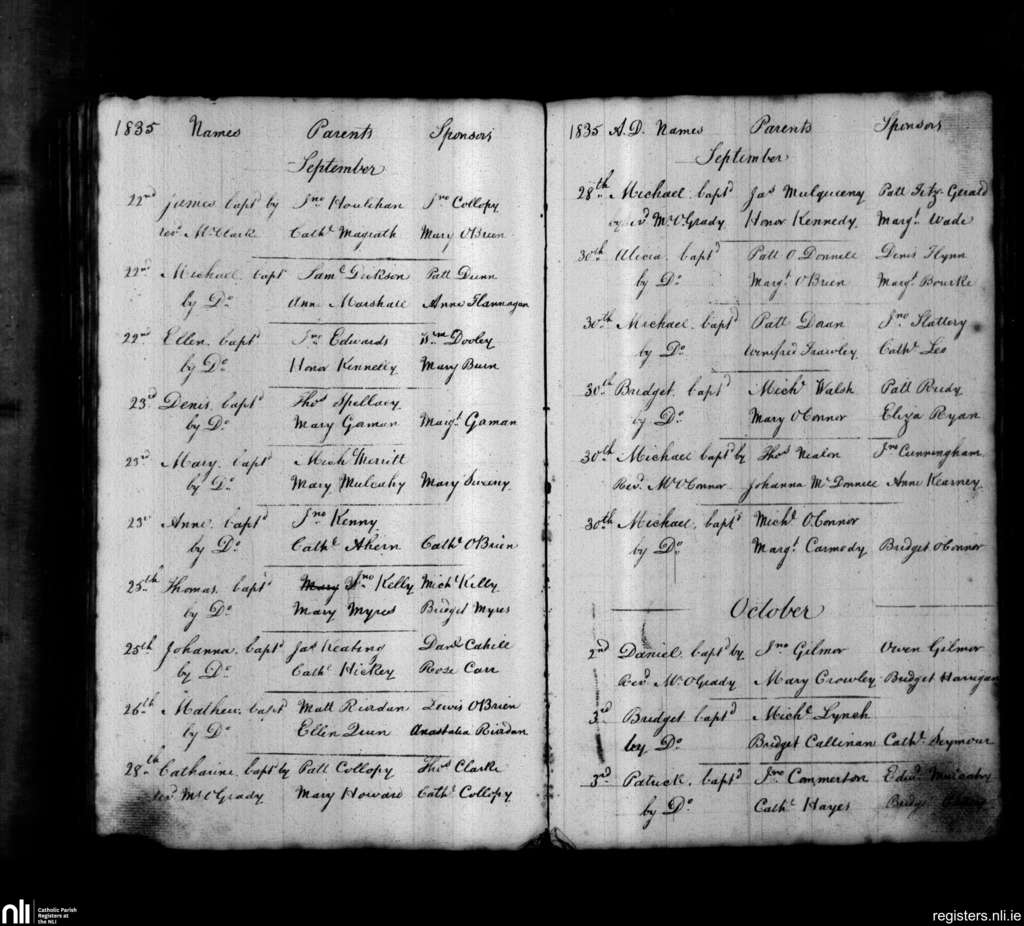 1835 Names Parents Sponsors
September
22nd James bapt'd by Jno Houlihan Jno Collopy
rev'd Mr Clark Cath'e Magrath Mary O'Brien
22nd Michael bapt Sam'l Dickson Patt Dunn
by Do Ann Marshall Anne Flannagan
22nd Ellen bapt'd Jno Edwards Wm Dooley
by Do Honor Kennelly Mary
23d Denis bapt'd Thos Spellacy
by Do Mary Gaman Marg't Gaman
23rd Mary bapt'd Mich'l Merritt
by Do Mary Mulcahy Mary Sweeny
23d Anne bapt'd Jno Kenny
by Do Cath'e Ahern Cath'e O'Brien
25th Thomas bapt'd Mary Jno Kelly Mich'l Kelly
by Do Mary Myres Bridget Myres
25th Johanna bapt'd Jas Keating Dan'l Cahill
by Do Cath'e Hickey Rose Carr
26th Mathew bapt'd Matt Riordan Lewis O'Brien
by Do Ellen Quin Anastatia Riordan
28th Catharine bapt by Patt Collopy Thos Clarke
rev'd Mr O'Grady Mary Howard Cath'e Collopy
1835 A.D. Names Parents Sponsors
September
28th Michael bapt'd Jas Mulqueeny Patt Fitz-Gerald
by rev'd Mr O'Grady Honor Kennedy Marg't Wade
30th Alicia bapt'd Patt O Donnell Denis Flynn
by Do Marg't O'Brien Marg't Bourke
30th Michael bapt'd Patt Jno Slattery
by Do Winefred Frawley Cath'e Leo
30th Bridget bapt'd Mich'l Walsh Patt Reidy
by Do Mary O'Connor Eliza Ryan
30th Michael bapt'd by Thos Nealon Jno Cunningham
Rev'd Mr O'Connor Johanna McDonnell Anne Kearney
30th Michael bapt'd Mich'l O'Connor
by Do Marg't Carmody Bridget O'Connor
October
2nd Daniel bapt'd by Jno Gilmor Owen Gilmor
Rev'd Mr O'Grady Mary Crowley Bridget Harrigan
3d Bridget bapt'd Mich'l Lynch
by Do Bridget Callinan Cath'e Seymour
3d Patrick bapt'd Jno Commerton Edw'd Mulcahy
by Do Cath'e Hayes Bridg't
nli Catholic Parish
Registers at
the NLI
registers.nli.ie